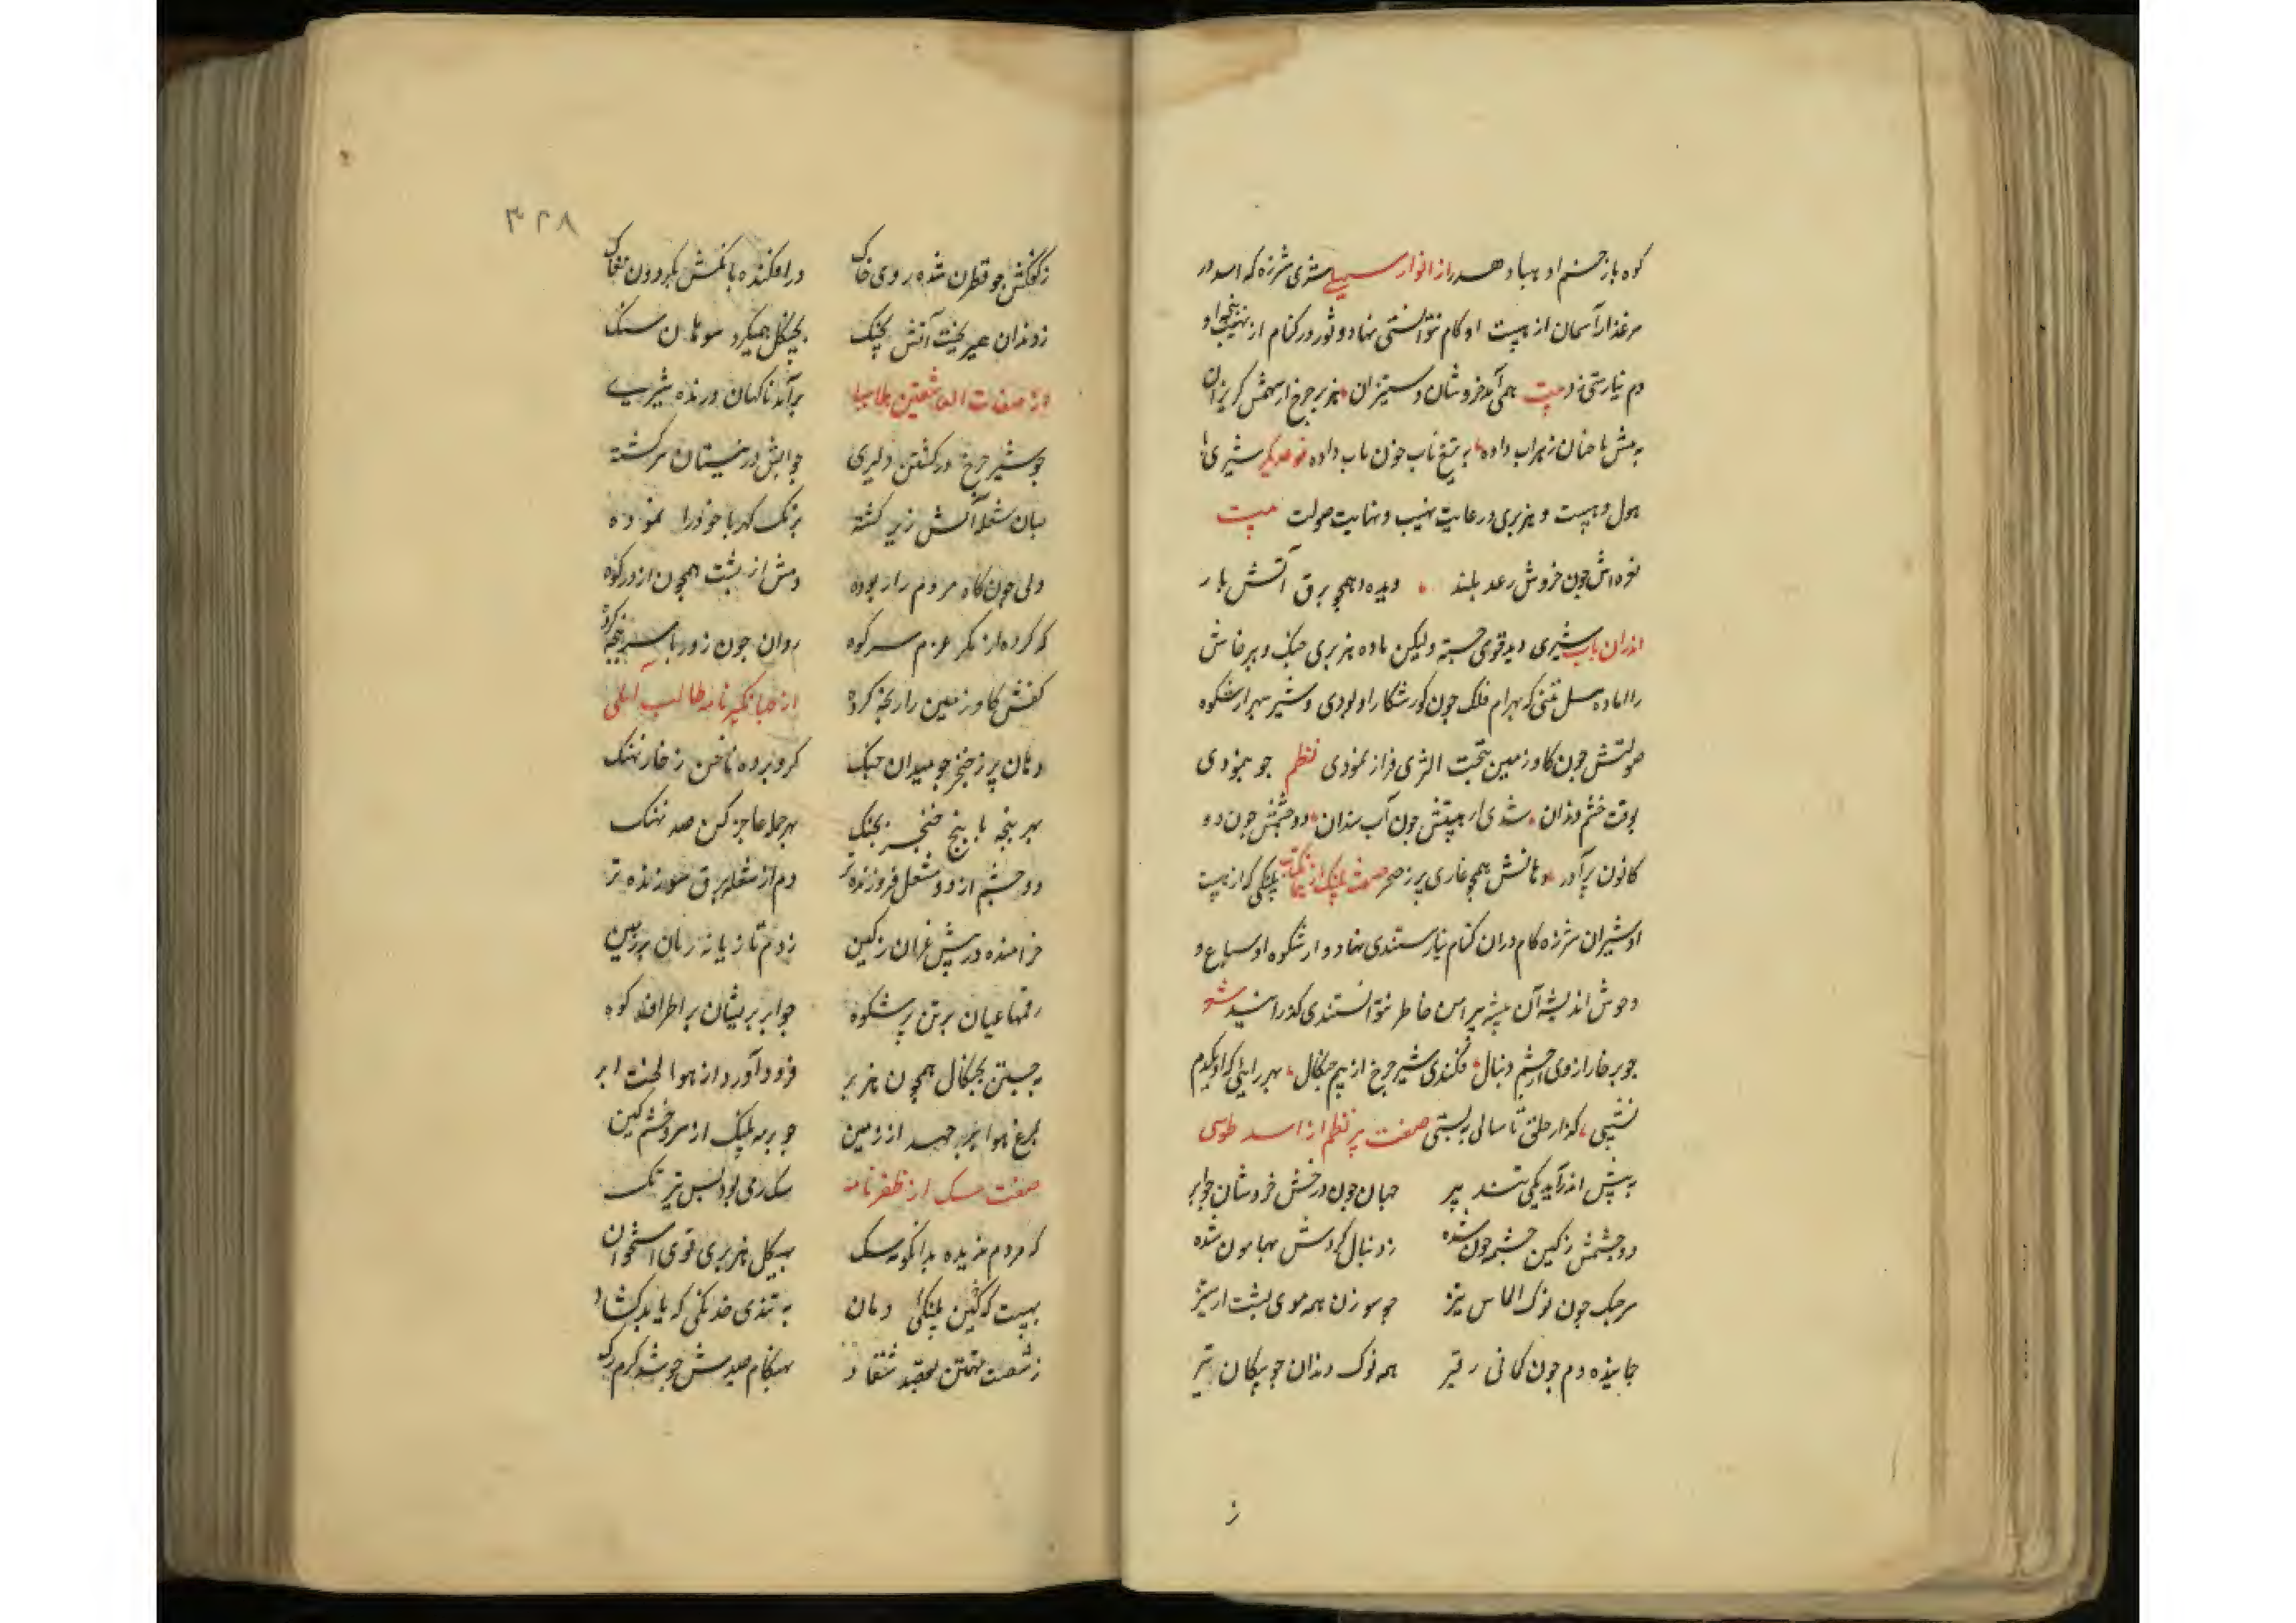 کوه باز جسم او بباد هدر از انوار سهیلی شری شرزه که اسد در
مرغذار آسمان از هیبت او کام نتوانستی نهاد و ثور در کنام از نهیب او
دم نیارستی زد بیت همی آمد خروشان و ستیزان هزبر چرخ از سهمش گریزان
به تیغ ناب خون ناب داده نوعدیگر شیری با
هول و هیبت و هزبری در غایت نهیب و نهایت صولت بیت
نعره اش چون خروش رعد بلند دیده همچو برق آتش بار
اندران باب شیری دید قوی جسته ولیکن ماده هزبری جنک و پرخاش
را آماده که بهرام فلک چون کور شکار او بودی و شیر سپهر از شکوه
صولتش چون کاو زمین بتحت الثری فراز نمودی نظم چو بنمودی
بوقت خشم دندان شدی از هیبتش چون آب سندان دو چشمش چون دو
کانون پر آذر دهانش همچو غاری پر ز خنجر صفت پلنک پلنکی که از هیبت
او شیران شرزه کام دران کنام نیارستندی نهاد و از شکوه او سباع و
وحوش اندیشه آن بیشه پیرامن خاطر نتوانستندی گذرانید شعر
چو بر خارا زدی از خشم دنبال فکندی شیر چرخ از بیم چنکال بهر راهی که او یکدم
نشستی گذار خلق تا سالی ببستی صفت ببر نظم از اسد طوسی
به پیش اندر آمد یکی تند ببر جهان چون درخش خروشان چو ابر
دو چشمش ز کین چشمه خون شده ز دنبال گردش بهامون شده
سر چنک چون نوک الماس تیز چو سوزن همه موی پشت از ستیز
دم چون کمانی ز قیر همه نوک دندان چو پیکان تیر
ز
۳۲۸
ز کفکش چو قطران شده روی خاک در افکنده بانکش بگردون مغاک
ز دندان همیریخت آتش بجنک بچنگل همیکرد سوهان سنک
از صفات العاشقین هلالی برآمد ناکهان درنده شیری
چو شیر چرخ در کشتن دلیری چو آتش در نیستان سرگشته
میان شعله آتش زیر گشته برنک کهربا خود را نموده
ولی چون کاه مردم را ربوده دمش از پشت همچون اژدر کوه
که کرده از کمر عزم سر کوه روان چون زور با سرپنجه کرده
کفش کاو زمین را رنجه کرده از جهانگیر نامه طالب آملی
دهان پر ز خنجر چو میدان جنک کرو برده ناخن ز خار نهنک
بهر پنجه با پنج خنجر بجنک بهر حمله عاجز کن صد نهنک
دو چشم از دو مشعل فروزنده تر دم از شعله برق سوزنده تر
خرامنده در پیش غران ز کین ز دم تازیانه زنان بر زمین
رقمها عیان بر تن پر شکوه چو ابر پریشان بر اطراف کوه
بجستن بچنکال همچون هزبر فرود آورد از هوا لخت ابر
بمرغ هوا بر جهد از زمین چو بر مه پلنک از سر خشم و کین
صفت سک از ظفرنامه سک وی بود بس تیز تک
که مردم ندیده بدانگونه سک بهیکل هزبری قوی استخوان
بهیبت که کین پلنکی دمان به تندی خدنکی که یابد کشاد
ز شصت تهمتن بقصد شغاد بهنکام صیدش چو شد گرم رک